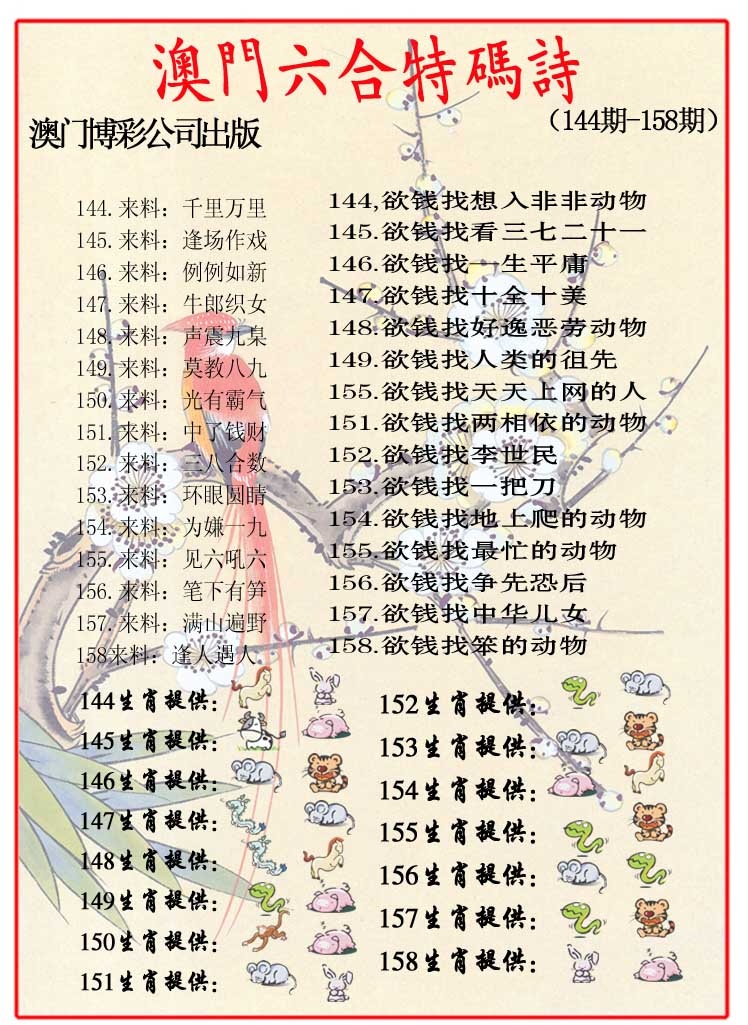 澳門六合特碼詩
澳门博彩公司出版
（144期-158期）
144.来料：千里万里
145.来料：逢场作戏
146.来料：例例如新
147.来料：牛郎织女
148.来料：声震九臬
149.来料：莫教八九
150.来料：光有霸气
151.来料：中了钱财
152.来料：三八合数
153.来料：环眼圆睛
154.来料：为嫌一九
155.来料：见六吼六
156.来料：笔下有笋
157.来料：满山遍野
158来料：逢人遇人
144,欲钱找想入非非动物
145.欲钱找看三七二十一
146.欲钱找一生平庸
147.欲钱找十全十美
148.欲钱找好逸恶劳动物
149.欲钱找人类的徂先
155.欲钱找天天上网的人
151.欲钱找两相依的动物
152.欲钱找李世民
153.欲钱找一把刀
154.欲钱找地上爬的动物
155.欲钱找最忙的动物
156.欲钱找争先恐后
157.欲钱找中华儿女
158.欲钱找笨的动物
144生肖提供：
145生肖提供：
146生肖提供：
147生肖提供：
148生肖提供：
149生肖提供：
150生肖提供：
151生肖提供：
152生肖提供：
153生肖提供：
154生肖提供：
155生肖提供：
156生肖提供：
157生肖提供：
158生肖提供：